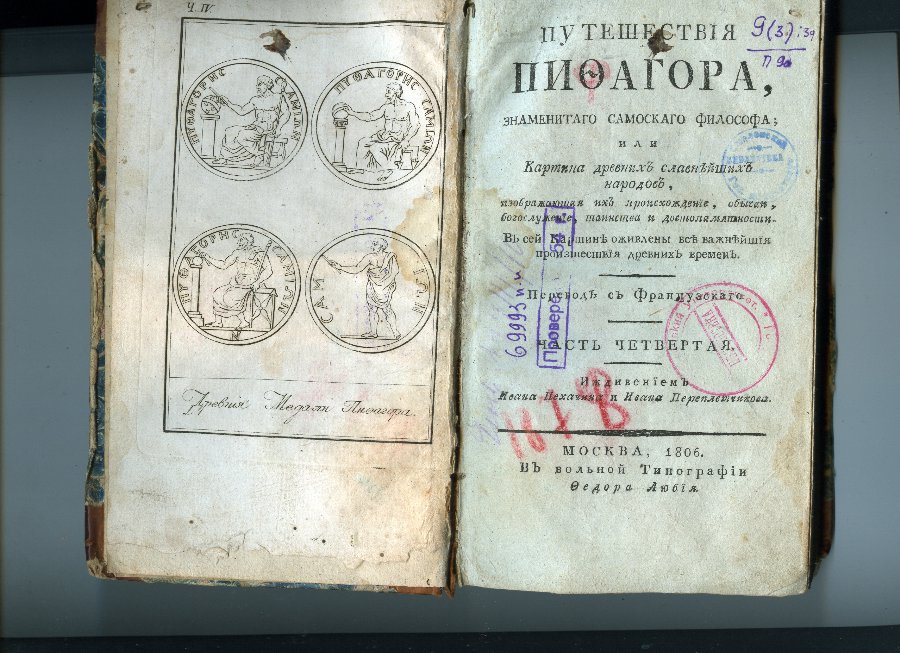 Ч. IV.
ПУѲАГОРИС САМІѠН
ПУѲАГОРИС САМІАН
ПУѲАГОРИС САМІАН
САМ ІѠН
Древнія Медали Пиѳагора.
ПУТЕШЕСТВІЯ
ПИѲАГОРА,
ЗНАМЕНИТАГО САМОСКАГО ФИЛОСОФА;
ИЛИ
Картина древнихъ славнѣйшихъ
народовъ,
изображающая ихъ происхожденіе, обычаи,
богослуженіе, таинства и достопамятности.
Въ сей Картинѣ оживлены всѣ важнѣйшія
произшествія древнихъ временъ.
Переводъ съ Французскаго.
ЧАСТЬ ЧЕТВЕРТАЯ.
Иждивеніемъ
Ивана и Ивана Переплетчикова.
МОСКВА, 1806.
Въ вольной Типографіи
Ѳедора Любія.
9(3)
П 90
69993 и.и
Провере